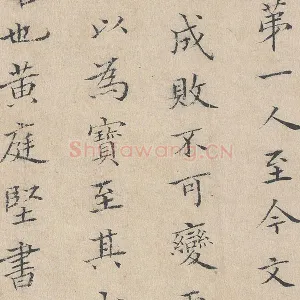 第一人至今文
成敗不可變
以為寶至其
也黃庭堅書
Shufawang.CN